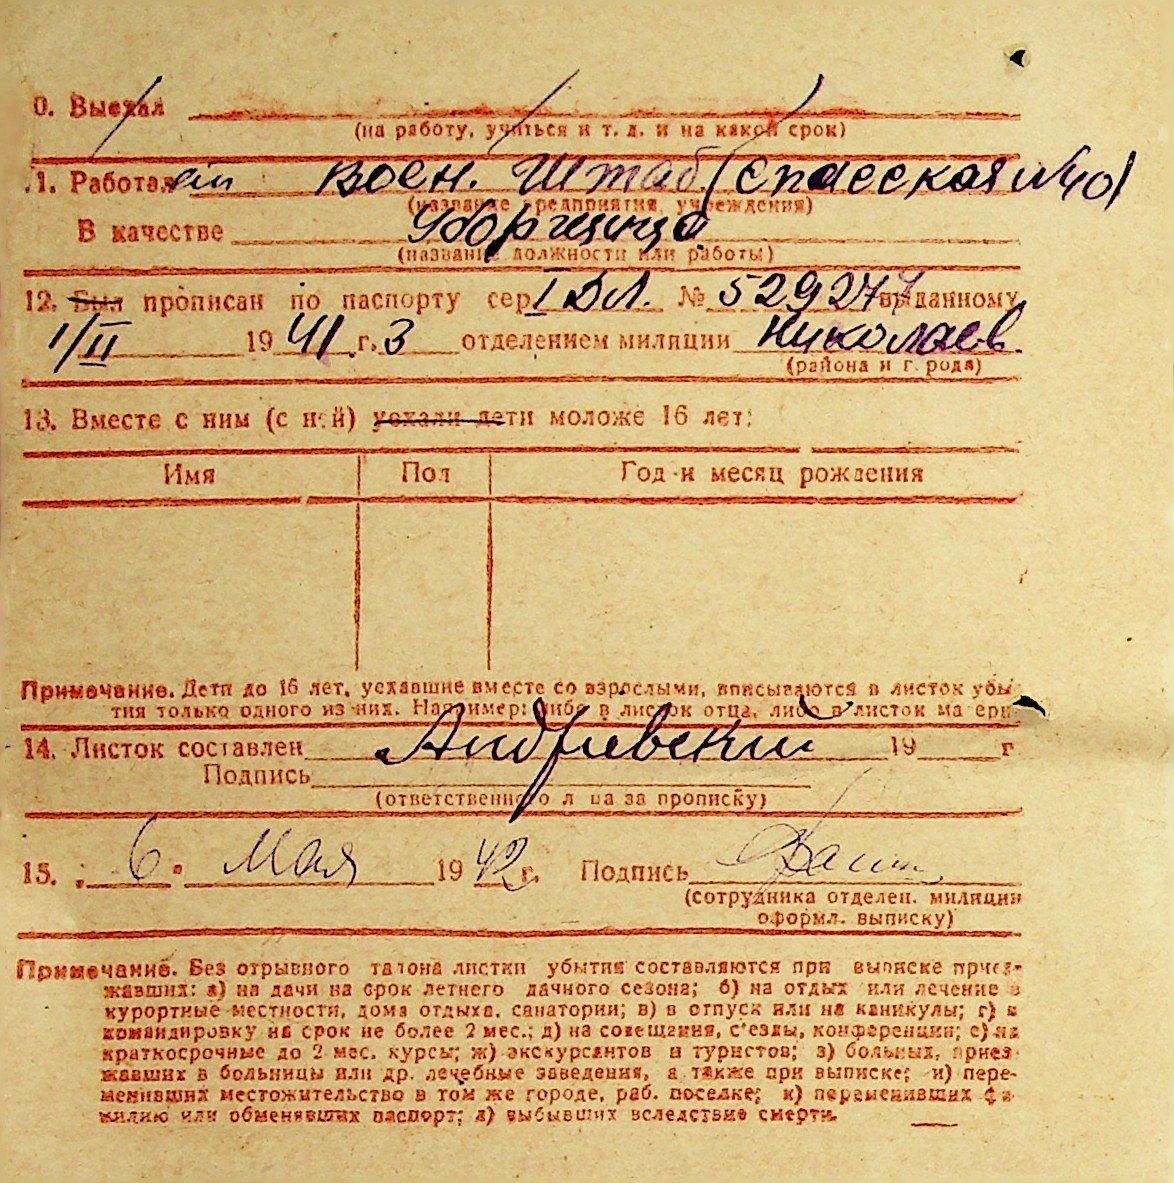 0. Выехал
(на работу, учиться и т. д. и на какой срок)
.1. Работает воен. Штаб (Спасская №40)
(название предприятия, учреждения)
В качестве уборщица
(название должности или работы)
12. Был прописан по паспорту сер I ДЛ. № 529277 выданному
I/II 1941 г. 3 отделением милиции Николаев.
(района и города)
13. Вместе с ним (с ней) уехали дети моложе 16 лет:
Имя Пол Год и месяц рождения
Примечание. Дети до 16 лет, уехавшие вместе со взрослыми, вписываются в листок убы-
тия только одного из них. Например: либо в листок отца, либо в листок матери
14. Листок составлен Андриевский 19 г
Подпись
(ответственного лица за прописку)
15. „6" Мая 1942 г. Подпись
(сотрудника отделен. милиции
оформл. выписку)
Примечание. Без отрывного талона листки убытия составляются при выписке приез-
жавших: а) на дачи на срок летнего дачного сезона; б) на отдых или лечение в
курортные местности, дома отдыха, санатории; в) в отпуск или на каникулы; г) в
командировку на срок не более 2 мес.; д) на совещания, с'езды, конференции; е) на
краткосрочные до 2 мес. курсы; ж) экскурсантов и туристов; з) больных, приез-
жавших в больницы или др. лечебные заведения, а также при выписке; и) пере-
менивших местожительство в том же городе, раб. поселке; к) переменивших фа-
милию или обменявших паспорт; л) выбывших вследствие смерти.